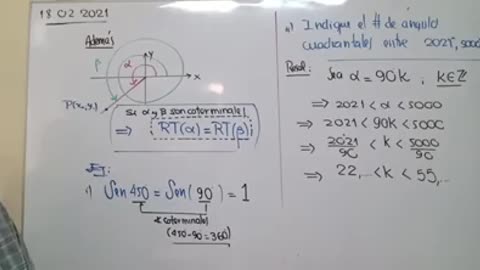 18 02 2021
Además
y
β
α
x
P(x,y)
Si α y β son coterminales
⇒ RT(α) = RT(β)
Ej:
1) Sen 450 = Sen(90) = 1
∡ coterminales
(450-90=360)
1) Indique el # de ángulo
cuadrantales entre 2021, 5000
Resol: Sea α = 90k ; k∈ℤ
⇒ 2021 < α < 5000
⇒ 2021 < 90k < 5000
⇒ 2021/90 < k < 5000/90
⇒ 22,... < k < 55,...